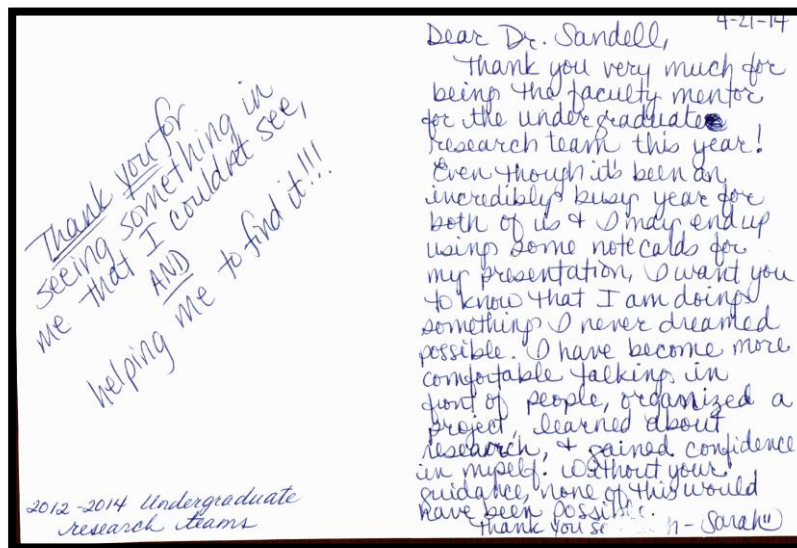 Thank you for
seeing something in
me that I couldn't see,
AND
helping me to find it!!!
2012-2014 Undergraduate
research teams
4-21-14
Dear Dr. Sandell,
Thank you very much for
being the faculty mentor
for the undergraduate
research team this year!
Even though it's been an
incredibly busy year for
both of us & I may end up
using some notecards for
my presentation, I want you
to know that I am doing
something I never dreamed
possible. I have become more
comfortable talking in
front of people, organized a
project, learned about
research, & gained confidence
in myself. Without your
guidance, none of this would
have been possible.
Thank you - Sarah